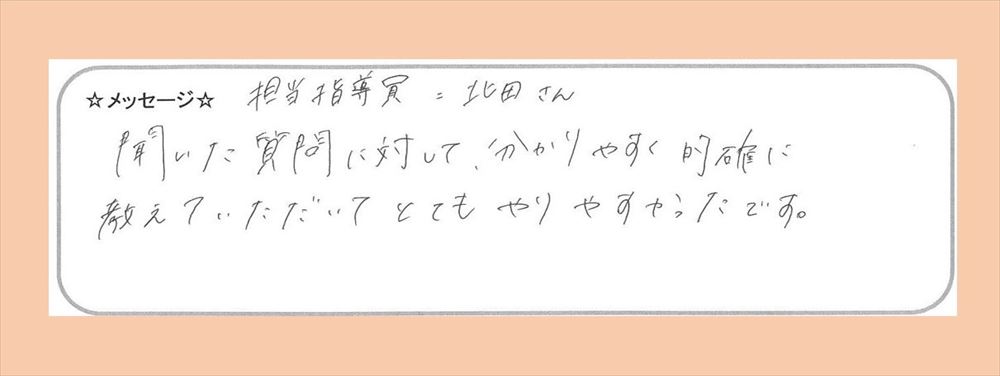 ☆メッセージ☆ 担当指導員:北田さん
聞いた質問に対して、分かりやすく的確に
教えていただいてとてもやりやすかったです。